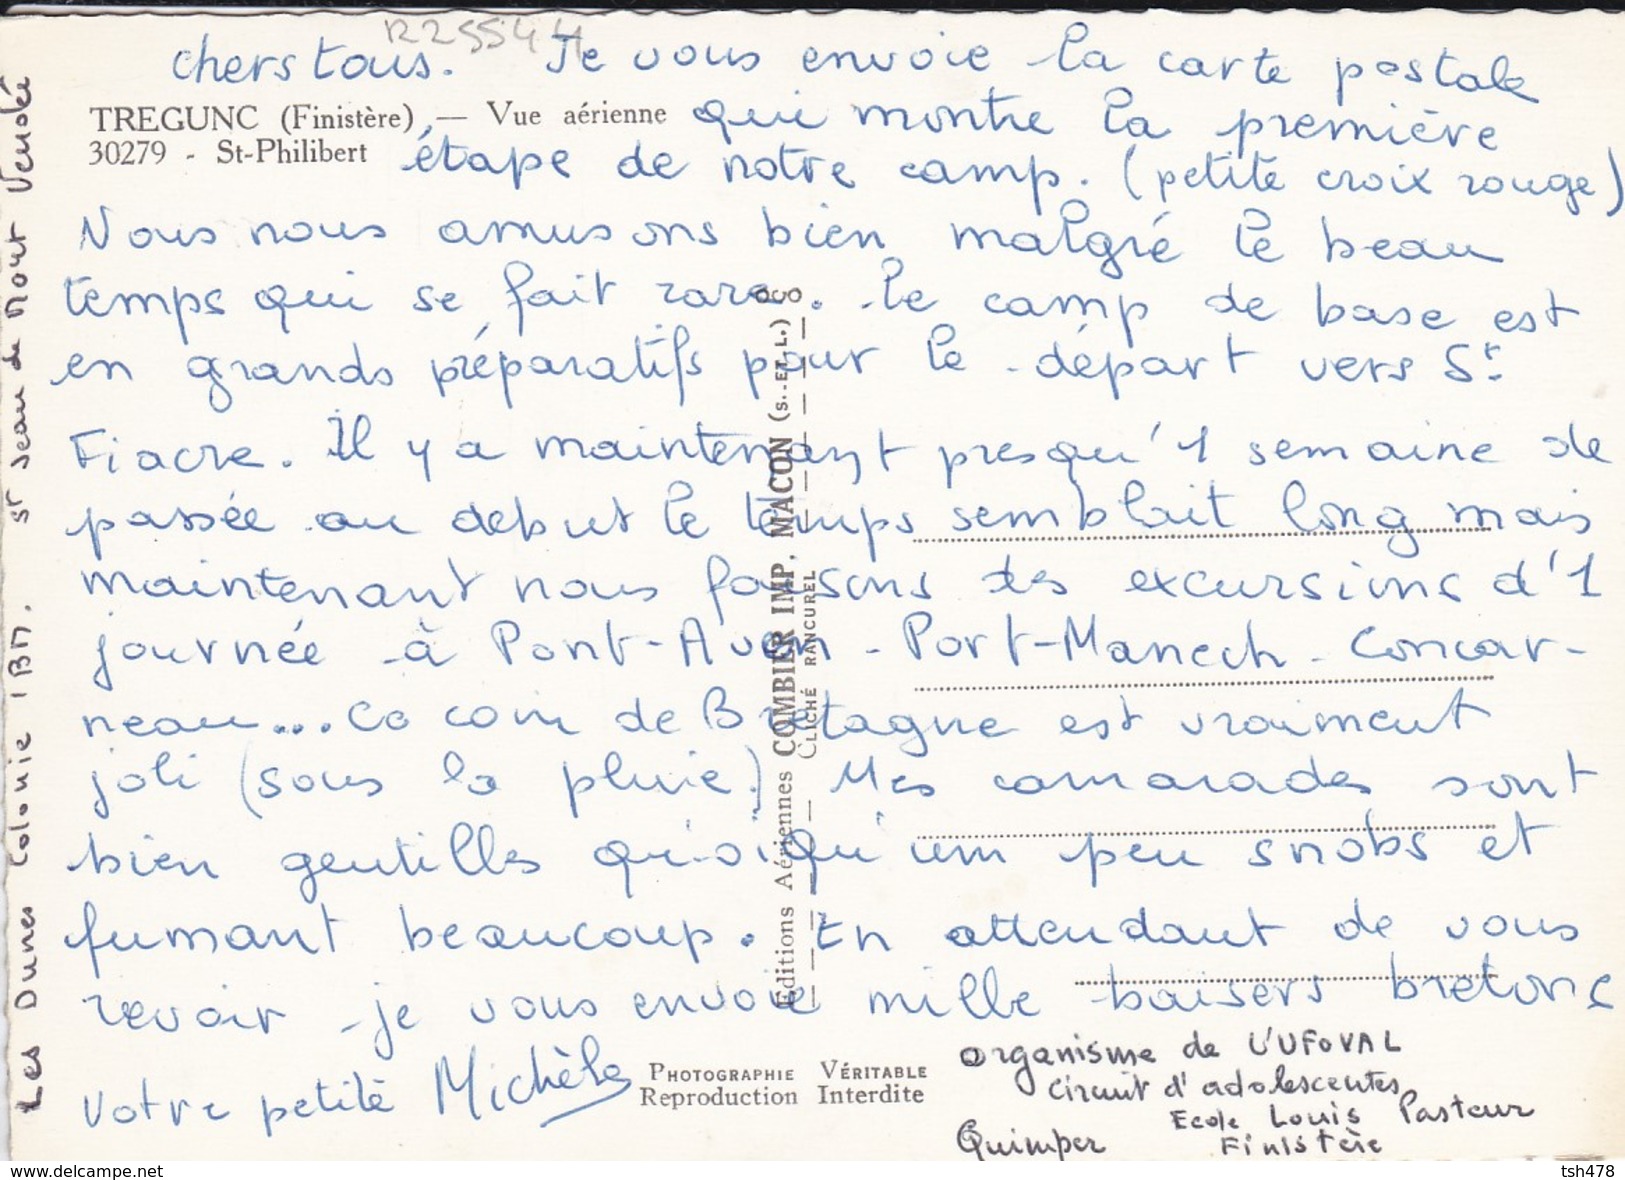 R25544
cherstous. Je vous envoie la carte postale
TREGUNC (Finistère) — Vue aérienne
qui montre la première
30279 - St-Philibert
étape de notre camp. (petite croix rouge)
Nous nous amusons bien malgré le beau
temps qui se fait rare. Le camp de base est
en grands préparatifs pour le départ vers St
Fiacre. Il y a maintenant presqu'1 semaine de
passée au debut le temps semblait long mais
maintenant nous faisons des excursions d'1
journée à Pont-Aven - Port-Manech - Concar-
neau... Ce coin de Bretagne est vraiment
joli (sous la pluie) Mes camarades sont
bien gentilles quoiqu'um peu snobs et
fumant beaucoup. En attendant de vous
revoir je vous envoie mille baisers bretons
Votre petite Michèle
PHOTOGRAPHIE VÉRITABLE
Reproduction Interdite
organisme de L'UFOVAL
Circuit d'adolescentes
Ecole Louis Pasteur
Quimper Finistère
Les Dunes Colonie IBM. St Jean de Mont Vendée
Editions Aériennes COMBIER IMP. MACON (S.-ET-L.)
CLICHÉ RANCUREL
tsh478